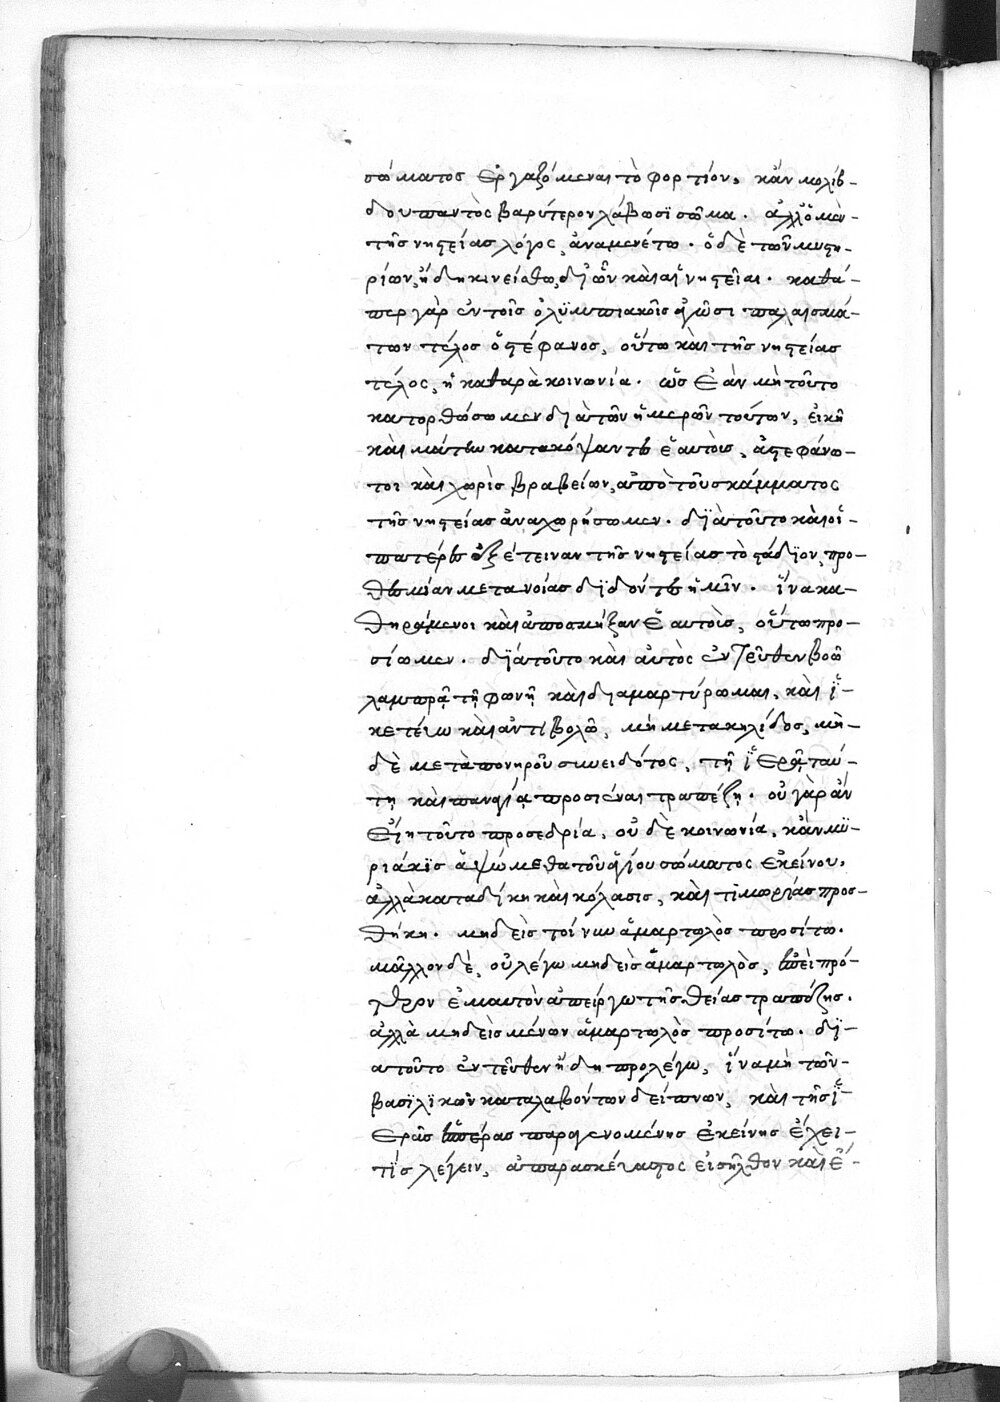 σώματος ἐργαζόμεναι τὸ φορτίον, κἂν μολίβ-
δου παντὸς βαρύτερον λάβωσι σῶμα. ἀλλ' ὁ μὲν
τῆς νηστείας λόγος, ἀναμενέτω. ὁ δὲ τῶν μυστη-
ρίων, ἤδη κινείσθω, δι' ὧν καὶ αἱ νηστεῖαι. καθά-
περ γὰρ ἐν τοῖς ὀλυμπιακοῖς ἀγῶσι παλαισμά-
των τέλος ὁ στέφανος, οὕτω καὶ τῆς νηστείας
τέλος, ἡ καθαρὰ κοινωνία. ὡς ἐὰν μὴ τοῦτο
κατορθώσωμεν διὰ τῶν ἡμερῶν τούτων, εἰκῆ
καὶ μάτην κατακόψαντες ἑαυτοὺς, ἀστεφάνω-
τοι καὶ χωρὶς βραβείων, ἀπὸ τοῦ σκάμματος
τῆς νηστείας ἀναχωρήσωμεν. διὰ τοῦτο καὶ οἱ
πατέρες ἐξέτειναν τῆς νηστείας τὸ στάδιον, προ-
θεσμίαν μετανοίας διδόντες ἡμῖν. ἵνα κα-
θηράμενοι καὶ ἀποσμήξαν ἑαυτοὺς, οὕτω προ-
σίωμεν. διὰ τοῦτο καὶ αὐτὸς ἐντεῦθεν βοῶ
λαμπρᾷ τῇ φωνῇ καὶ διαμαρτύρωμαι, καὶ ἱ-
κετεύω καὶ ἀντιβολῶ, μὴ μετα κηλίδος, μη-
δὲ μετὰ πονηροῦ συνειδότος, τῇ ἱερᾷ ταύ-
τῃ καὶ παναγίᾳ προσιέναι τραπέζῃ. οὐ γὰρ ἂν
εἴη τοῦτο προσεδρία, οὐδὲ κοινωνία, κἂν μυ-
ριάκις ἁψώμεθα τοῦ ἁγίου σώματος ἐκείνου,
ἀλλὰ καταδίκη καὶ κόλασις, καὶ τιμωρίας προσ-
θήκη. μηδεὶς τοίνυν ἁμαρτωλὸς προσίτω.
μᾶλλον δὲ, οὐ λέγω μηδεὶς ἁμαρτωλὸς, ἐπεὶ πρό-
τερον ἐμαυτὸν ἀπείργω τῆς θείας τραπέζης.
ἀλλὰ μηδεὶς μένων ἁμαρτωλὸς προσίτω. δι-
ατοῦτο ἐντεῦθεν ἤδη προλέγω, ἵνα μὴ τῶν
βασιλικῶν καταλαβόντων δείπνων, καὶ τῆς ἱ-
ερᾶς ἑσπέρας παραγενομένης ἐκείνης ἔχει
τίς λέγειν, ἀπαρασκέυαστος εἰσῆλθον καὶ ἔ-